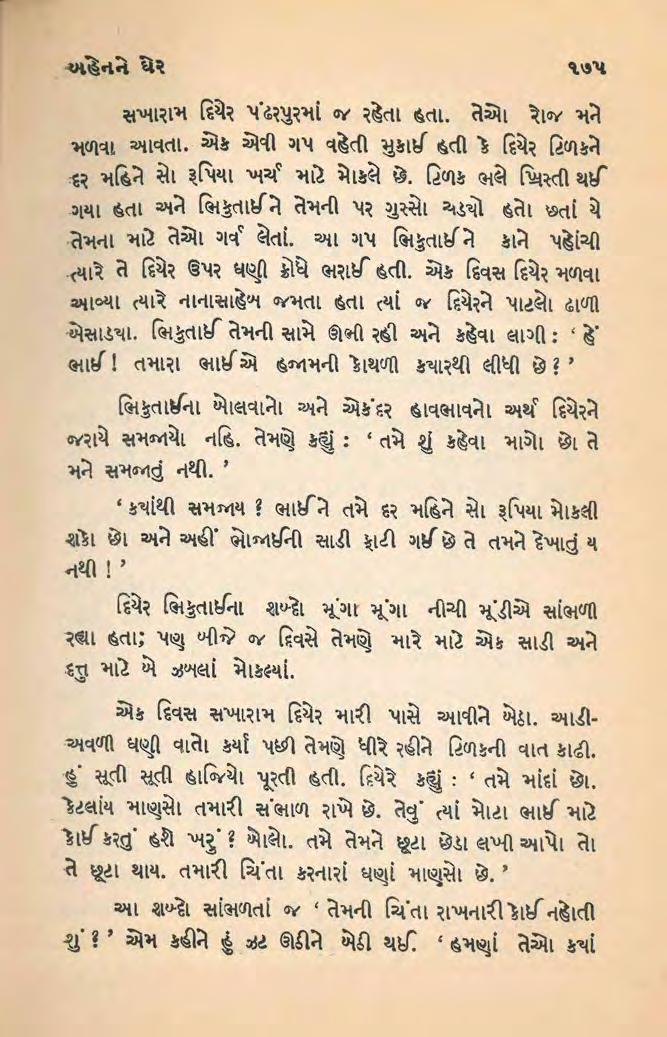 બહેનને ઘેર ૧૭૫
સખારામ દિયેર પંઢરપુરમાં જ રહેતા હતા. તેઓ રોજ મને
મળવા આવતા. એક એવી ગપ વહેતી મુકાઈ હતી કે દિયેર ટિળકને
દર મહિને સો રૂપિયા ખર્ચ માટે મોકલે છે. ટિળક ભલે ખ્રિસ્તી થઈ
ગયા હતા અને ભિકુતાઈને તેમની પર ગુસ્સો ચડ્યો હતો છતાં યે
તેમના માટે તેઓ ગર્વ લેતાં. આ ગપ ભિકુતાઈને કાને પહોંચી
ત્યારે તે દિયેર ઉપર ઘણી ક્રોધે ભરાઈ હતી. એક દિવસ દિયેર મળવા
આવ્યા ત્યારે નાનાસાહેબ જમતા હતા ત્યાં જ દિયેરને પાટલો ઢાળી
બેસાડ્યા. ભિકુતાઈ તેમની સામે ઊભી રહી અને કહેવા લાગી : ‘ હેં
ભાઈ ! તમારા ભાઈએ હજામની કોથળી ક્યારથી લીધી છે ? ’
ભિકુતાઈના બોલવાનો અને એકંદર હાવભાવનો અર્થ દિયેરને
જરાયે સમજાયો નહિ. તેમણે કહ્યું : ‘ તમે શું કહેવા માગો છો તે
મને સમજાતું નથી. ’
‘ ક્યાંથી સમજાય ? ભાઈને તમે દર મહિને સો રૂપિયા મોકલી
શકો છો અને અહીં ભોજાઈની સાડી ફાટી ગઈ છે તે તમને દેખાતું ય
નથી ! ’
દિયેર ભિકુતાઈના શબ્દો મૂંગા મૂંગા નીચી મૂંડીએ સાંભળી
રહ્યા હતા; પણ બીજે જ દિવસે તેમણે મારે માટે એક સાડી અને
દત્તુ માટે બે ઝબલાં મોકલ્યાં.
એક દિવસ સખારામ દિયેર મારી પાસે આવીને બેઠા. આડી-
અવળી ઘણી વાતો કર્યા પછી તેમણે ધીરે રહીને ટિળકની વાત કાઢી.
હું સૂતી સૂતી હાજિયો પૂરતી હતી. દિયેરે કહ્યું : ‘ તમે માંદાં છો.
કેટલાંય માણસો તમારી સંભાળ રાખે છે. તેવું ત્યાં મોટા ભાઈ માટે
કોઈ કરતું હશે ખરું ? બોલો. તમે તેમને છૂટા છેડા લખી આપો તો
તે છૂટા થાય. તમારી ચિંતા કરનારાં ઘણાં માણસો છે. ’
આ શબ્દો સાંભળતાં જ ‘ તેમની ચિંતા રાખનારી કોઈ નહોતી
શું ? ’ એમ કહીને હું ઝટ ઊઠીને બેઠી થઈ. ‘ હમણાં તેઓ ક્યાં